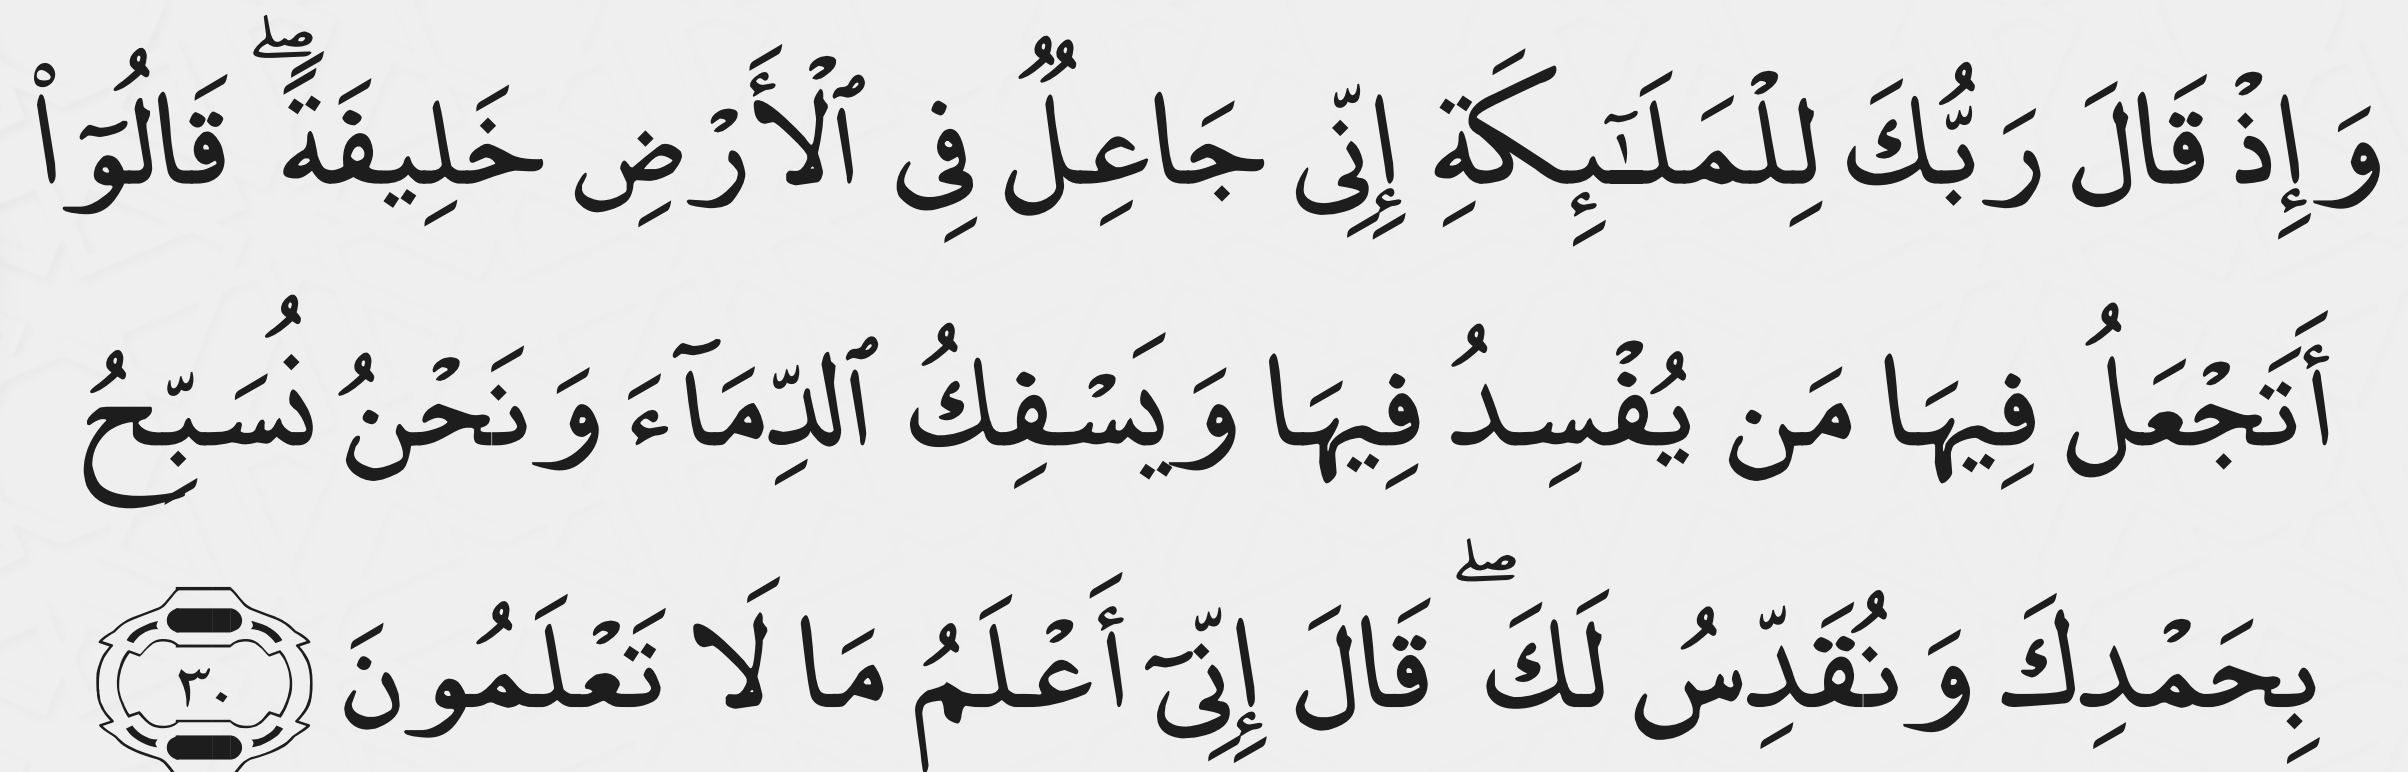 وَإِذْ قَالَ رَبُّكَ لِلْمَلَـٰٓئِكَةِ إِنِّى جَاعِلٌ فِى ٱلْأَرْضِ خَلِيفَةً ۖ قَالُوٓا۟
أَتَجْعَلُ فِيهَا مَن يُفْسِدُ فِيهَا وَيَسْفِكُ ٱلدِّمَآءَ وَنَحْنُ نُسَبِّحُ
بِحَمْدِكَ وَنُقَدِّسُ لَكَ ۖ قَالَ إِنِّىٓ أَعْلَمُ مَا لَا تَعْلَمُونَ ٣٠